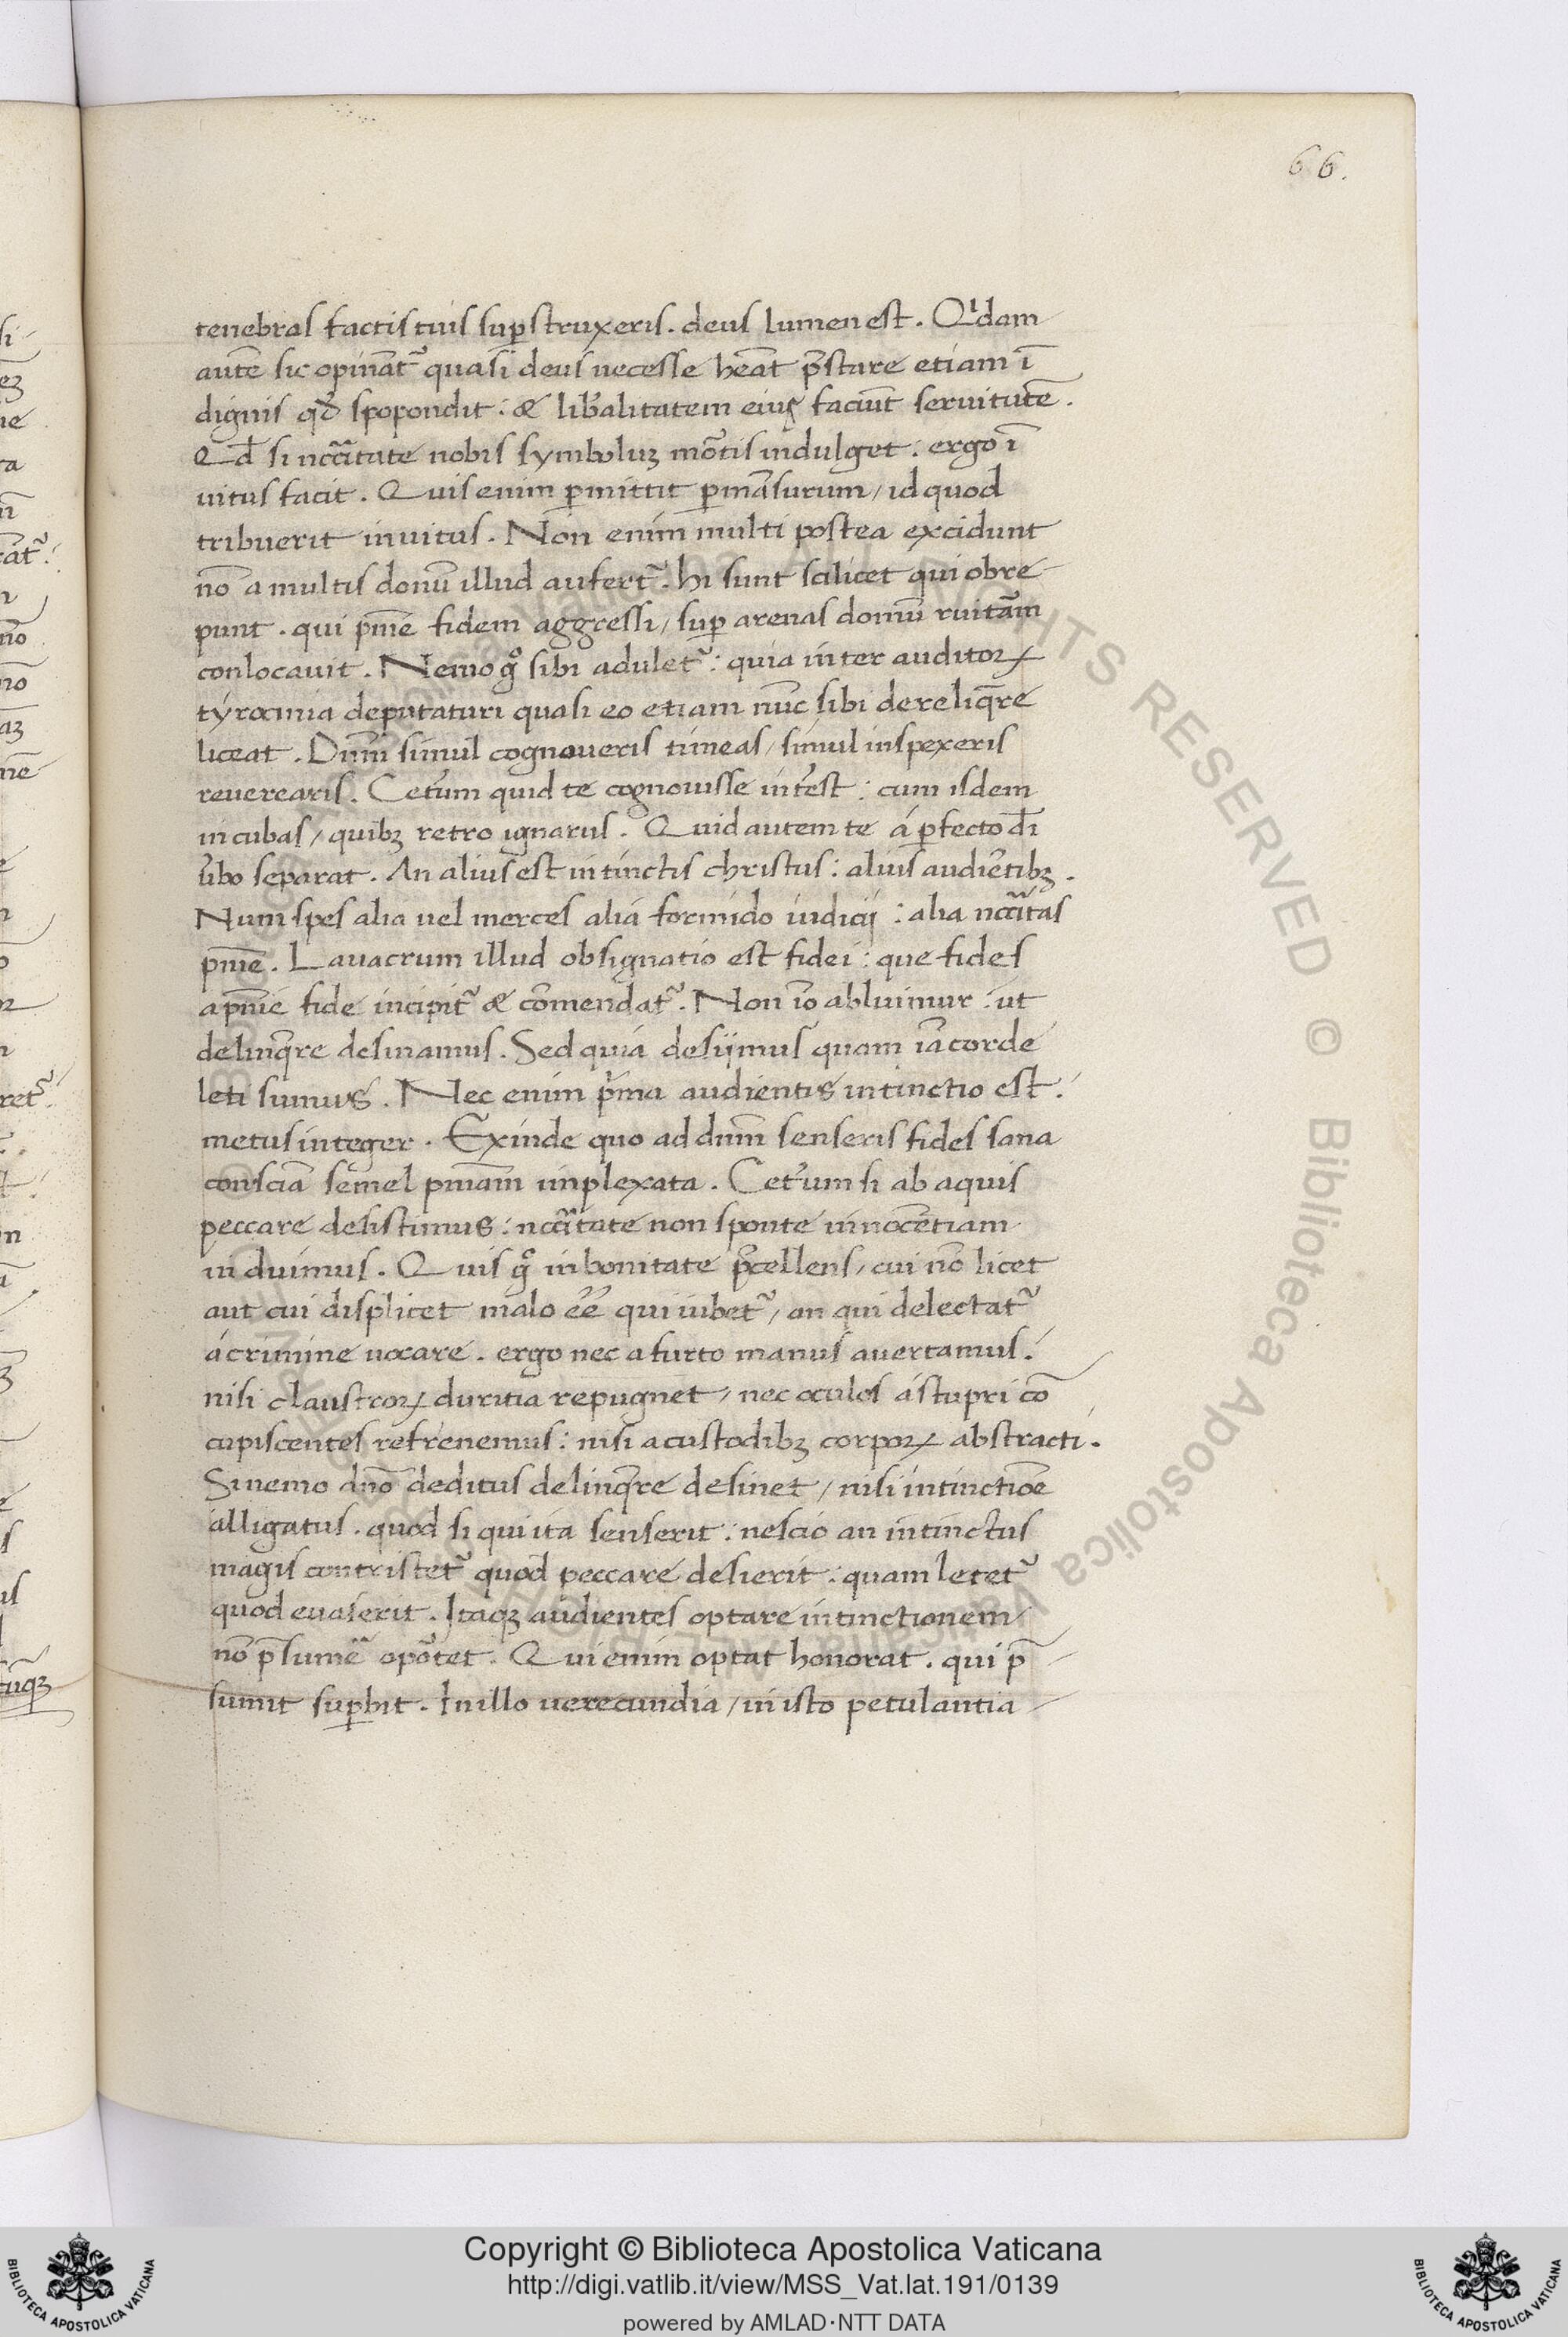 66.
tenebras factis tuis suꝑstruxeris. deus lumen est. Qͥdam
autē sic opinātᷣ quasi deus necesse hēat p̄stare etiam ī
dignis qđ spopondit: & lib̄alitatem eius faciūt seruitutē.
Qđ si nccītate nobis symboluꝫ mōtis indulget: ergo ī
uitus facit. Quis enim ꝑmittit ꝑmāsurum / id quod
tribuerit inuitus. Non enim multi postea excidunt
nō a multis donū illud aufertᷣ. hi sunt scilicet qui obre
punt. qui pn̄ie fidem aggressi / suꝑ arenas domū ruitām
conlocauit. Nemo gͦ sibi aduletᷣ: quia inter auditoꝝ
tyrocinia deputaturi quasi eo etiam nūc sibi derelinq̄re
liceat. Dn̄m simul cognoueris timeas / simul inspexeris
reuerearis. Cet̄um quid te cognouisse int̄est: cum isdem
incubas / quibꝫ retro ignarus. Quid autem te á ꝑfecto dī
ūbo separat. An alius est intinctis christus: alius audiētibꝫ.
Num spes alia uel merces alia formido iudicij: alia nccītas
pn̄ie. Lauacrum illud obsignatio est fidei: que fides
a pn̄ie fide incipitᷣ & cōmendatᷣ. Non iō abluimur: ut
delinq̄re desinamus. Sed quia desijmus quam iā corde
leti sumus. Nec enim pͥma audientis intinctio est:
metus integer. Exinde quo ad dn̄m senseris fides sana
conscīa semel pn̄iam implexata. Cet̄um si ab aquis
peccare desistimus: nccītate non sponte innocētiam
induimus. Quis gͦ in bonitate p̄cellens / cui nō licet
aut cui displicet malo eē qui iubetᷣ / an qui delectatᷣ
á crimine uacare. ergo nec a furto manus auertamus:
nisi claustroꝝ duritia repugnet / nec oculos á stupri cō
cupiscentes refrenemus: nisi a custodibꝫ corpoꝝ abstracti.
Si nemo dn̄o deditus delinq̄re desinet / nisi intinctiōe
alligatus. quod si qui ita senserit: nescio an intinctus
magis contristetᷣ quod peccare desierit: quam letetᷣ
quod euaserit. Itaqꝫ audientes optare intinctionem
nō p̄sumē opōtet. Qui enim optat honorat. qui p̄
sumit suꝑbit. In illo uerecundia / in isto petulantia
Copyright © Biblioteca Apostolica Vaticana
http://digi.vatlib.it/view/MSS_Vat.lat.191/0139
powered by AMLAD·NTT DATA